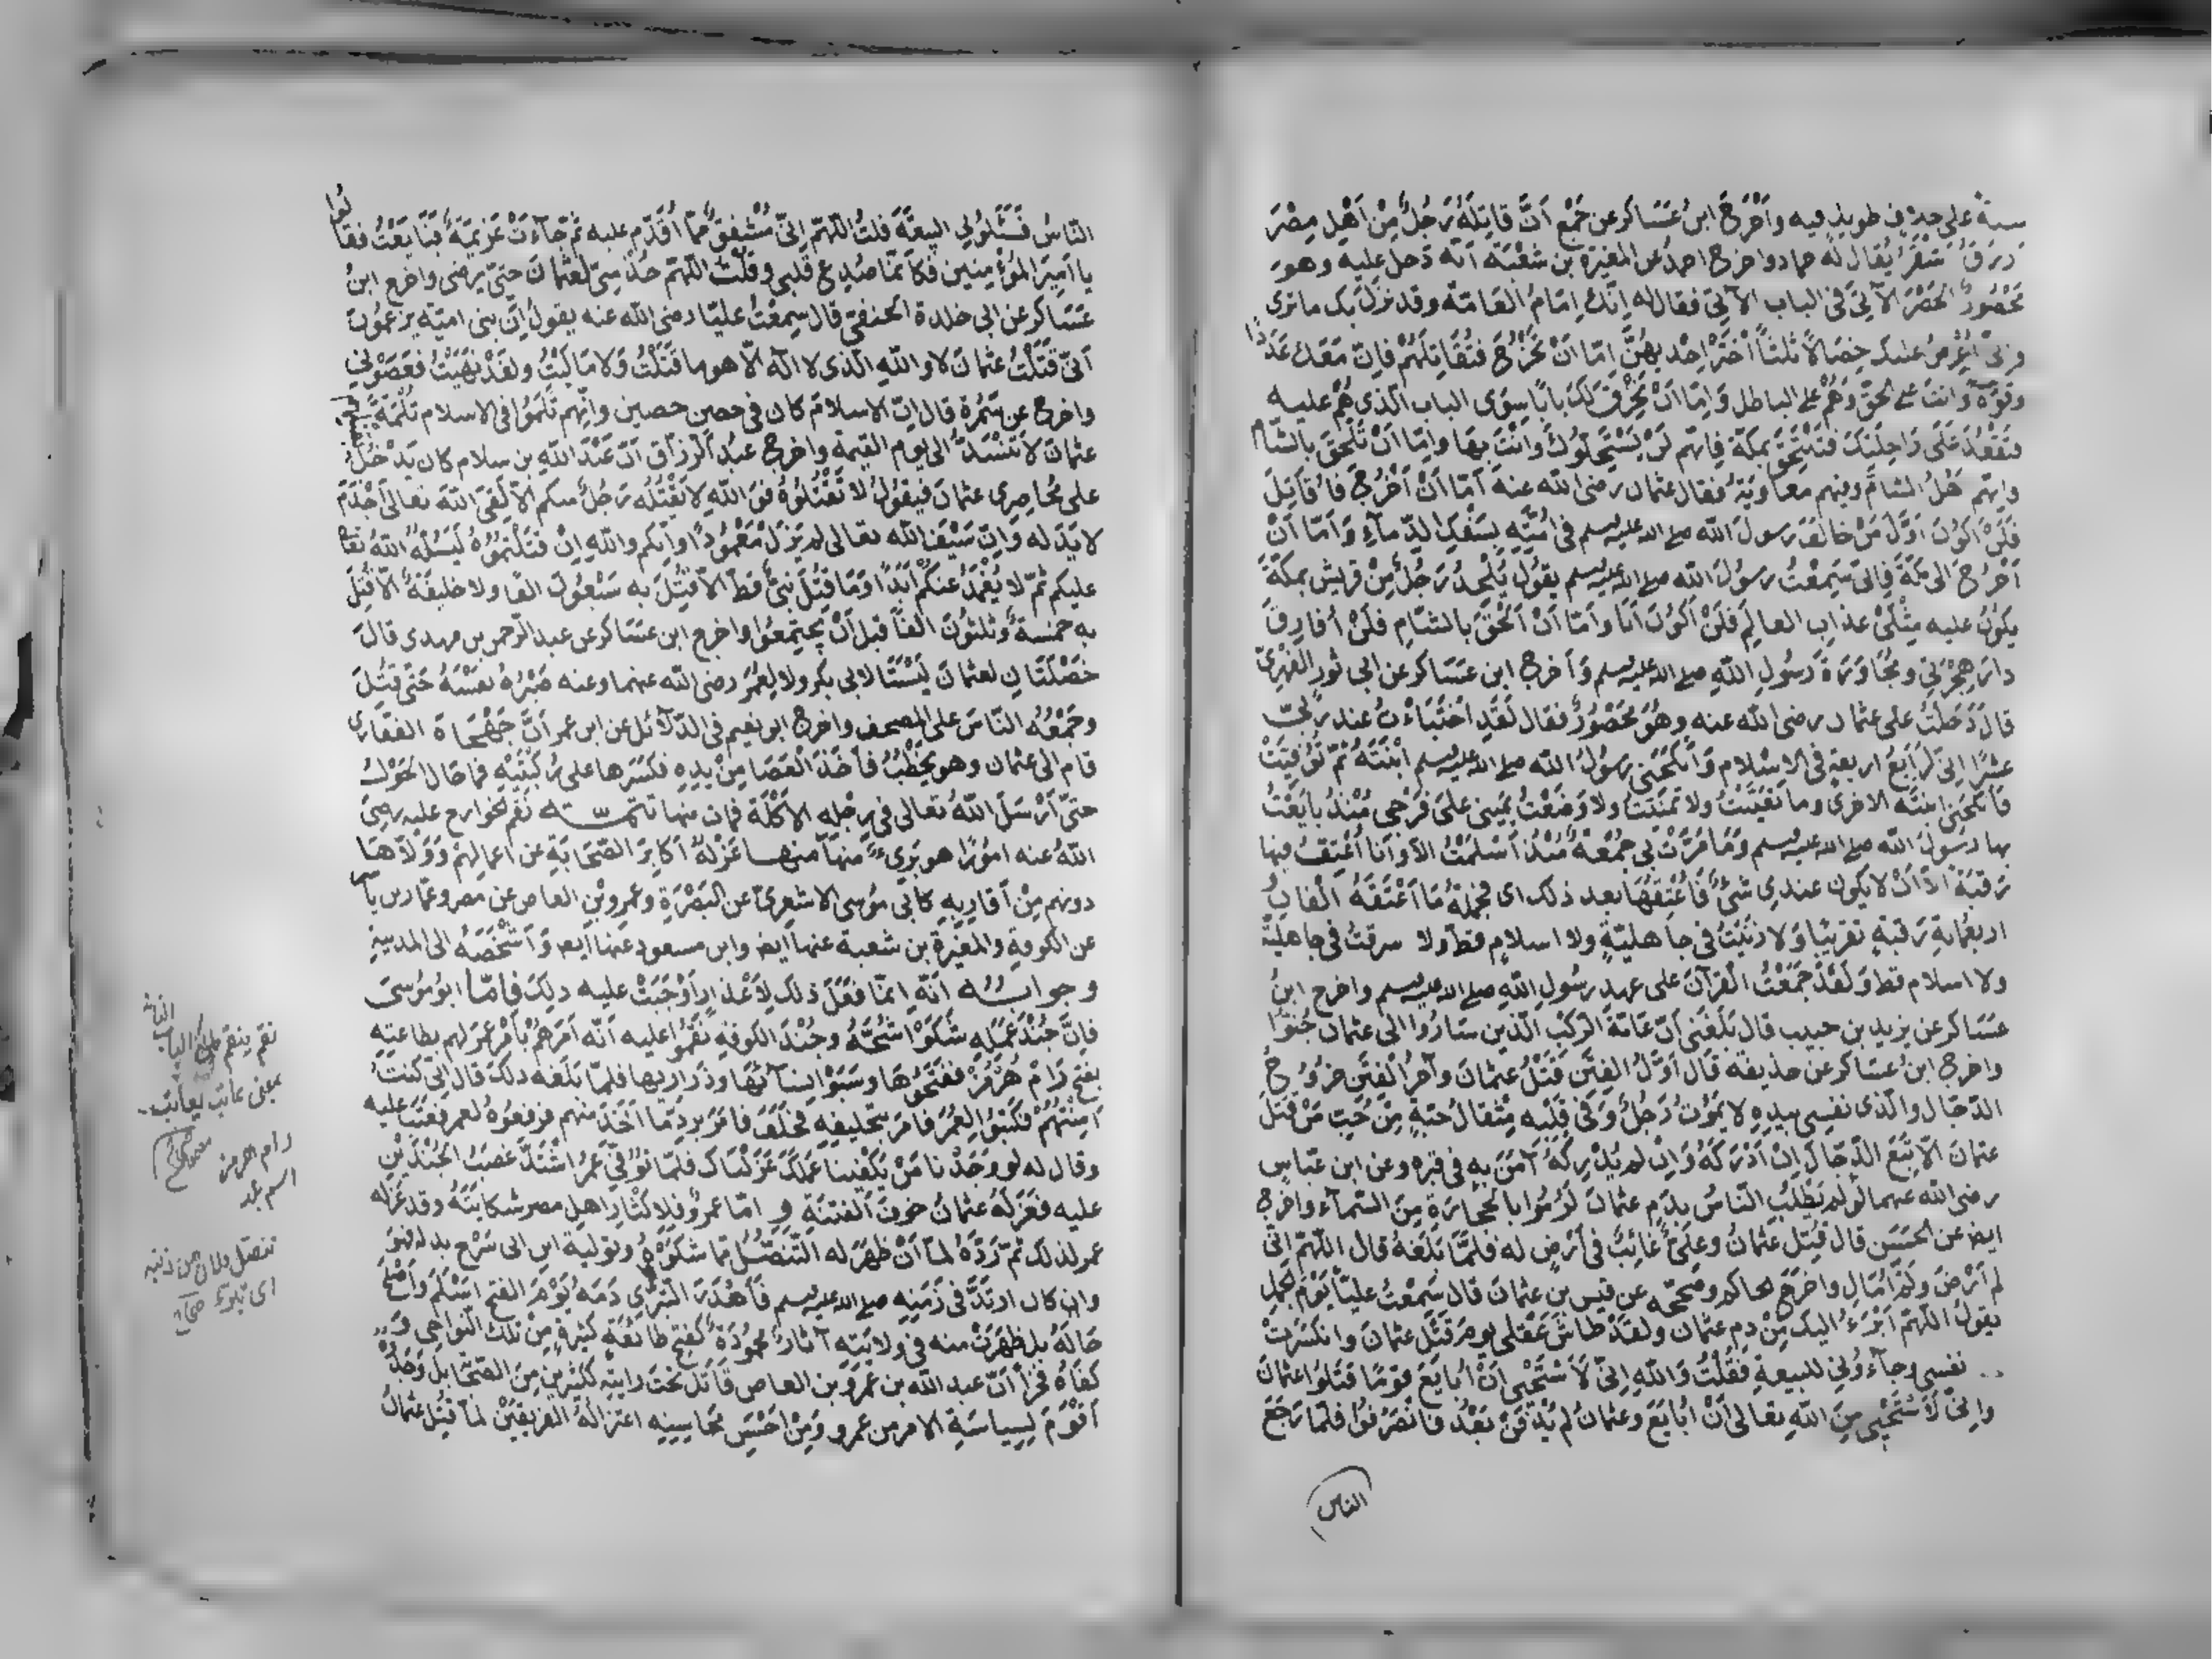 سنة على حدٍ في طويل فيه وأخرج ابن عساكر عن جمع أنّ قاتله رجلٌ مِنْ أهل مِصْرَ
أزرقُ أشقرُ يُقال له حماد واخرج احمدُ عن المغيرة بن شعبة انّه دخل عليه وهو
محصورٌ الحَصْرَ الآتِيَ في الباب الآتي فقال له إنّك إمامُ العَامّة وقد نزلَ بك ما ترى
وإنّي أعْرِضُ عليك خِصَالاً ثلثاً اخْتَرْ إحْديهُنَّ إمّا انْ تَخْرُجَ فتُقَاتِلَهُمْ فإنّ معَك عَدَدًا
وقوّةً وَانتَ على الحقّ وهُمْ على الباطل وَإمّا انْ تَخْرِقَ لَكَ باباً سِوَى الباب الّذي هُمْ عليه
فتَقْعُدَ عَلَى رَاحِلَتِكَ فتَلْحَقَ بمكّة فإنّهم لَنْ يَسْتَحِلّوكَ وَانْتَ بِهَا وإمّا انْ تَلْحَقَ بالشّام
وإنّهم أهْلُ الشامِ وفيهم معاويَةُ فقال عثمان رضى الله عنه أمّا انْ أخْرُجَ فأُقَاتِلَ
فَلَنْ أكُونَ اوّلَ مَنْ خالَفَ رسولَ الله صلى الله عليه وسلم في أُمّتِهِ بِسَفْكِ الدّمآءِ وَأمّا انْ
أخْرُجَ الى مَكّةَ فإنّى سَمِعْتُ رسُولَ الله صلى الله عليه وسلم يقُول يُلْحِدُ رَجُلٌ مِنْ قريش بمكّةَ
يكُونُ عليه مِثْلَىْ عذابِ العالَمِ فَلَنْ أكُونَ أنَا وَأمّا انْ ألْحَقَ بالشّامِ فَلَنْ أُفَارِقَ
دارَ هِجْرَتِي ومُجَاوَرَةَ رَسُولِ اللهِ صلى الله عليه وسلم وَأخرج ابن عسَاكر عن ابي ثور الفَهْمِيّ
قالَ دَخلْتُ على عثمان رضى الله عنه وهُوَ مَحْصُورٌ فقال لَقَدِ اخْتَبَأْتُ عند ربّي
عشْرًا إنّي لَرَابِعُ اربعةٍ في الاسْلام وَأنْكَحَنِي رسُولُ الله صلى الله عليه وسلم ابْنَتَهُ ثُمّ تُوُفِّيَتْ
فَأنْكَحَنِي ابنتَه الاخرى وما تَغَنَّيْتُ ولا تَمَنَّيْتُ ولا وَضَعْتُ يَمِيني عَلى فَرْجي مُنْذُ بايَعْتُ
بها رسُولَ الله صلى الله عليه وسلم وَمَا مَرَّتْ بي جُمْعَةٌ مُنْذُ أسْلَمْتُ الاّ وَأنَا أُعْتِقُ فيها
رَقَبَةً الاّ انْ لا يَكونَ عندي شَيْءٌ فَأُعْتِقُهَا بعد ذلك اى فجملةُ مَا أعْتَقَهُ ألْفَانِ
اربعُمائةِ رَقَبَةٍ تقريبًا وَلا زَنَيْتُ في جاهليّةٍ ولا اسلامٍ قطّ ولا سرقتُ في جاهليّةٍ
ولا اسلام قطّ وَلَقَدْ جَمَعْتُ القُرآنَ على عهدِ رسُولِ اللهِ صلى الله عليه وسلم واخرج ابنُ
عسَاكر عن يزيد بن حبيب قال بَلَغَنِي أنّ عَامّةَ الرّكْبِ الّذين سَارُوا الى عثمان جُنّوا
واخرج ابنُ عسَاكر عن حذيفة قَال أوّلُ الفِتَن قَتْلُ عثمَانَ وآخرُ الفِتَن خرُوجُ
الدّجّال والّذى نفسِي بيدِه لا يمُوتُ رَجُلٌ وَفي قَلْبِه مِثْقالُ حَبّةٍ مِنْ حُبِّ مَنْ قَتَلَ
عثمانَ الاّ تَبِعَ الدّجّالَ إنْ أدْرَكَهُ وَانْ لم يُدْرِكْهُ آمَنَ بِهِ في قبرِه وعن ابن عبّاسٍ
رضى الله عنهما لَوْ لَمْ يَطْلُبِ النّاسُ بِدَمِ عثمَانَ لَرُمُوا بالحجارَةِ مِنَ السّمآءِ واخرج
ايضا عن الحسَنِ قالَ قُتِلَ عُثمانُ وعليٌّ غائبٌ في أرْضٍ له فلمَّا بَلَغَهُ قال اللّهمّ إنّي
لم أرْضَ وَلَمْ أُمَالِ واخرَجَ الحاكم وصحّحه عن قيس بن عثمَانَ قالَ سَمِعْتُ عليّاً يَوْمَ الجملِ
يقُولُ اللّهمّ أبْرَءُ اليكَ مِنْ دمِ عثمان ولقَدْ طاشَ عَقْلي يومَ قَتْلِ عثمَانَ وانكسَرَتْ
نفسى وجآءُوني للبيعةِ فقُلْتُ وَاللهِ إنّي لأسْتَحْيِي أنْ أُبايِعَ قوْمًا قَتَلُوا عثمانَ
وإنّى لأسْتَحْيِي مِنَ اللهِ تعَالى أنْ أُبَايِعَ وعثمانُ لم يُدْفَنْ بَعْدُ فانْصَرَفُوا فلمّا رَجَعَ
الناس
النّاسُ فَسَئَلُونِي البيعَةَ قلتُ اللّهمّ إنّي مُشْفِقٌ مِمّا أُقَدِّمُ عليه ثمّ جآءَتْ عَزِيمَةٌ فبَايَعْتُ فقالُوا
يا اميرَ المُؤمِنين فكأنّمَا صُدِعَ قلبي وقلْتُ اللّهمّ خُذْ مِنّي لعثمانَ حتّى يَرضى واخرج ابنُ
عسَاكر عن ابي خلدة الحنفىّ قال سِمِعْتُ عليّا رضى الله عنه يقولُ إنّ بني اميّة يزعمُونَ
أنّي قَتَلْتُ عثمانَ لا واللهِ الّذى لا اله الاّ هو ما قَتَلْتُ وَلا مَالَيْتُ ولقَدْ نَهَيْتُ فعَصَوْني
واخرج عن سَمُرة قال إنّ الاسلامَ كان في حصن حصين وإنّهم ثَلَمُوا في الاسلام ثُلْمَةً
عثمَانَ لا تَنْسَدُّ الى يومِ القيمة واخرج عبدُ الرزاق انّ عَبْدَ اللهِ بن سلام كان يَدْخلُ
على مُحَاصِرِي عثمَانَ فيقُولُ لا تَقْتُلُوهُ فَوَاللهِ لا يَقْتُلُه رَجُلٌ منكم الاّ لَقِيَ اللهَ تعالى أجْذَمَ
لا يَدَ له وَانّ سَيْفَ الله تعَالى لم يَزَلْ مَغْمُودًا وإنّكم واللهِ إنْ قتَلْتُمُوهُ لَيَسُلّهُ اللهُ تعَا
عليكم ثمّ لا يُغْمِدُهُ عنكم أبَدًا وَمَا قُتِلَ نبيٌّ قطّ الاّ قُتِلَ به سَبْعُونَ الفًا ولا خليفَةٌ الاّ قُتِلَ
به خمْسَةٌ وثلثُونَ الفًا قبل أنْ يَجتمِعُوا واخرج ابن عسَاكر عن عبد الرّحمن بن مهدى قالَ
خصْلَتَانِ لعثمانَ ليْسَتَا لابي بكر ولا لِعُمَرَ رضى الله عنهما وعنه صَبْرُهُ نفسَهُ حتّى قُتِلَ
وجَمْعُهُ النّاسَ على المصحف واخرج ابو نعيم في الدّلائل عن ابن عمر أنّ جَهْجَاهَ الغفارى
قام الى عثمان وهو يخطُبُ فأخَذَ العَصَا مِنْ يدِه فكسَرها على رُكْبَتِهِ فما حَال الحَوْلُ
حتّى أرْسَلَ اللهُ تعالى في رِجْلِهِ الأكْلَةَ فمات منها تتمّــة نقم الخوارج عليه رضى
اللهُ عنه امُورًا هو بَرِيءٌ منها منها عَزْلُهُ أكابِرَ الصّحَابةِ عن اعمالِهمْ وَوَلاّهَا
دونهم مِنْ أقارِبِه كأبي مُوسى الاشعريّ عن البَصْرةِ وعمرو بْنِ العاص عن مصر وعمّار بن ياسر
عن الكوفةِ والمغيْرةِ بن شعبة عنها ايضا وابن مسعود عنها ايضا وَأشْخَصَهُ الى المدينةِ
وجوابــه أنّه انّما فعَلَ ذلك لأعْذارٍ أوْجَبَتْ عليه ذلِكَ فامّا ابو مُوسى
فإنّ جُنْدَ عَمَلِه شَكَوْا شُحَّهُ وجُنْدَ الكوفةِ نَقَمُوا عليه أنّه أمَرَهُمْ بأمْرِ عُمَر لهم بطاعتِه
بفتح رَامَ هُرْمُزَ ففتَحُوْهَا وسَبَوْا نسآئَهَا وذَرَاريها فلمّا بَلَغَه ذلِكَ قال إنّي كُنْتُ
أمَّنْتُهُمْ فكتَبُوا لِعُمَرَ فأمَرَ بتحليفِهِ فحلَفَ فأمَرَ بِرَدِّ ما أُخِذَ منهم فرفعُوهُ لعمر فعَتَبَ عليه
وقال له لو وَجَدْنا مَنْ يَكْفِينا عَمَلَكَ عَزَلْنَاك فلمّا تُوُفّيَ عُمَرُ اشْتَدَّ غضَبُ الجُنْدَيْنِ
عليه فعَزَلَهُ عثمانُ خوفَ الفتنَةِ و امّا عمرٌو فلإكْثَارِ اهلِ مصر شكايَتَهُ وقد عَزَله
عمر لذلك ثمّ رَدَّهُ لمّا أنْ ظهَرَ له التّنَصُّلُ ممّا شَكَوْهُ وتولية ابن ابى سَرْح بدلَه فهُو
وإن كان ارتدَّ في زمَنِه صلى الله عليه وسلم فَأهْدَرَ النّبيُّ دَمَه يَوْمَ الفتح أسْلَمَ وأصْلَحَ
حَالَهُ بل ظهَرَتْ منه في ولايَتِه آثارٌ محمُودَةٌ كفتح طائفَةٍ كثيرةٍ مِنْ تلك النّواحِي وَ
كفَاهُ فخْرًا أنّ عبد الله بن عَمْرِو بن العاص قَاتَل تحتَ رايتِه ككثيرينَ مِنَ الصّحَابةِ بل وَجَدُوهُ
أقْوَمَ لِسِياسَةِ الامر من عمرو ومِنْ أحْسَنِ محَاسِنِه اعتزالُهُ الفريقَيْنِ لمّا قُتِلَ عثمانُ
نقم ينقم
بمعنى عاتب يعاتب
رام هرمز
اسم بلد
تنصل فلان من ذنبه
اى تبرّء صحاح